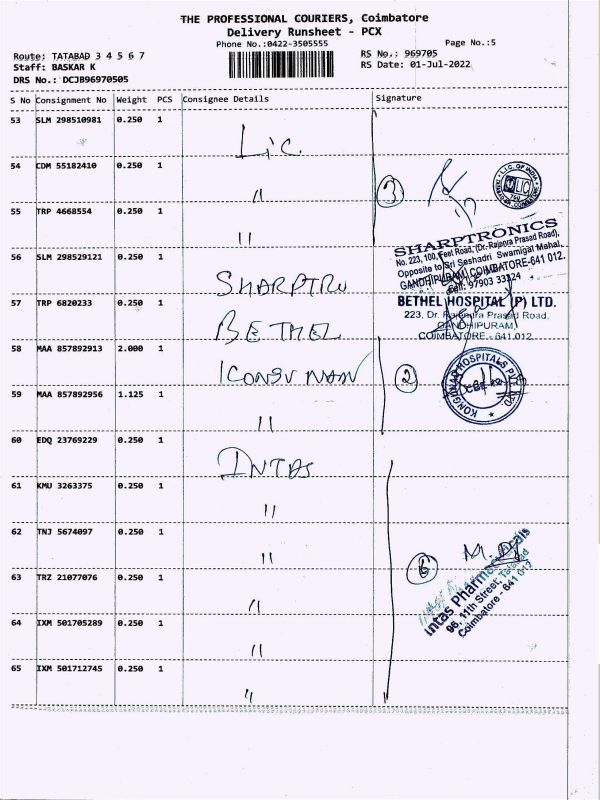 THE PROFESSIONAL COURIERS, Coimbatore
Delivery Runsheet - PCX
Phone No.:0422-3505555
Page No.:5
Route: TATABAD 3 4 5 6 7
RS No.: 969705
Staff: BASKAR K
RS Date: 01-Jul-2022
DRS No.: DCJB96970505
S No Consignment No Weight PCS Consignee Details Signature
53 SLM 298510981 0.250 1 Lic.
54 CDM 55182410 0.250 1 "
55 TRP 4668554 0.250 1 "
3
L.I.C. OF INDIA
LIC
56 SLM 298529121 0.250 1 SHARPTRO
SHARPTRONICS
No. 223, 100, Feet Road, (Dr. Rajenra Prasad Road),
Opposite to Sri Seshadri Swamigal Mahal,
GANDHIPURAM, COIMBATORE-641 012.
Cell: 97903 33324
57 TRP 6820233 0.250 1 BETHEL
BETHEL HOSPITAL (P) LTD.
223, Dr. Rajendra Prasad Road,
GANDHIPURAM,
COIMBATORE - 641 012
58 MAA 857892913 2.000 1
59 MAA 857892956 1.125 1 "
2
KONGUNAD HOSPITALS PVT LTD.
CBE-12
60 EDQ 23769229 0.250 1 INTAS
61 KMU 3263375 0.250 1 "
62 TNJ 5674097 0.250 1 "
63 TRZ 21077076 0.250 1 "
64 IXM 501705289 0.250 1 "
65 IXM 501712745 0.250 1 "
6
Intas Pharmaceuticals
96, 11th Street, Tatabad
Coimbatore - 641 012